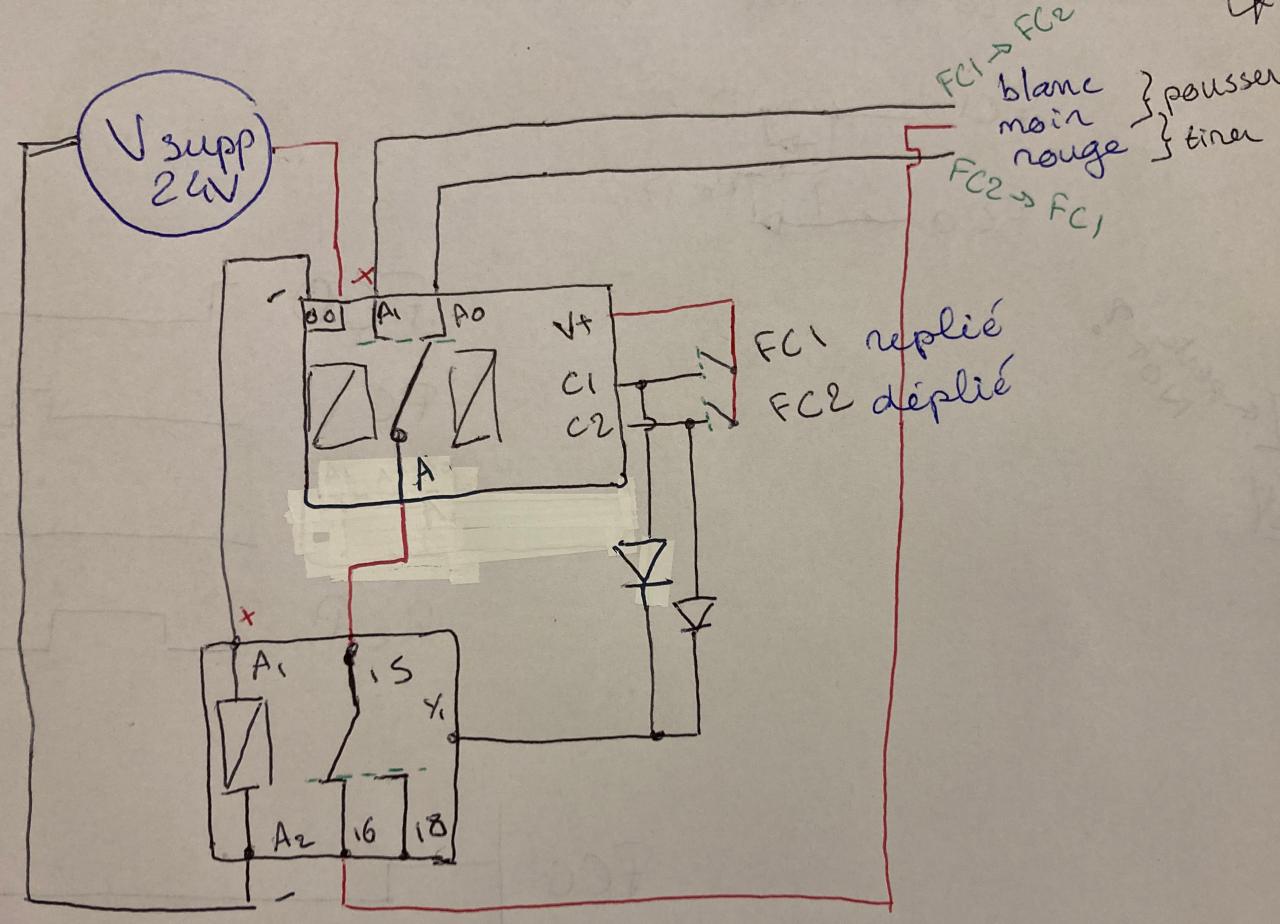 FC1 → FC2
blanc } pousser
noir
rouge } tirer
FC2 → FC1
V supp
24V
x
A1 A0
V+
C1
C2
FC1 replié
FC2 déplié
A
x
A1 15
Y1
A2 16 18